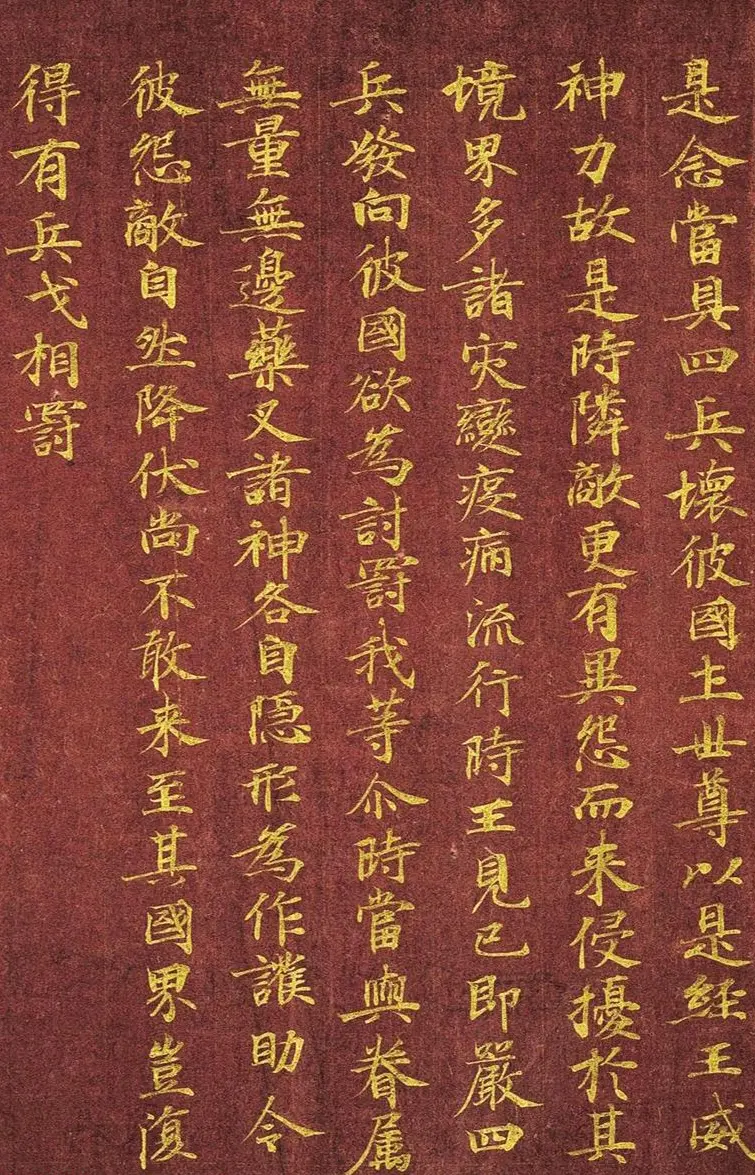 是念當具四兵壞彼國土世尊以是經王威
神力故是時隣敵更有異怨而来侵擾於其
境界多諸灾變疫病流行時王見已即嚴四
兵發向彼國欲為討罸我等尒時當與眷属
無量無邊藥叉諸神各自隱形為作護助令
彼怨敵自然降伏尚不敢来至其國界豈復
得有兵戈相罸